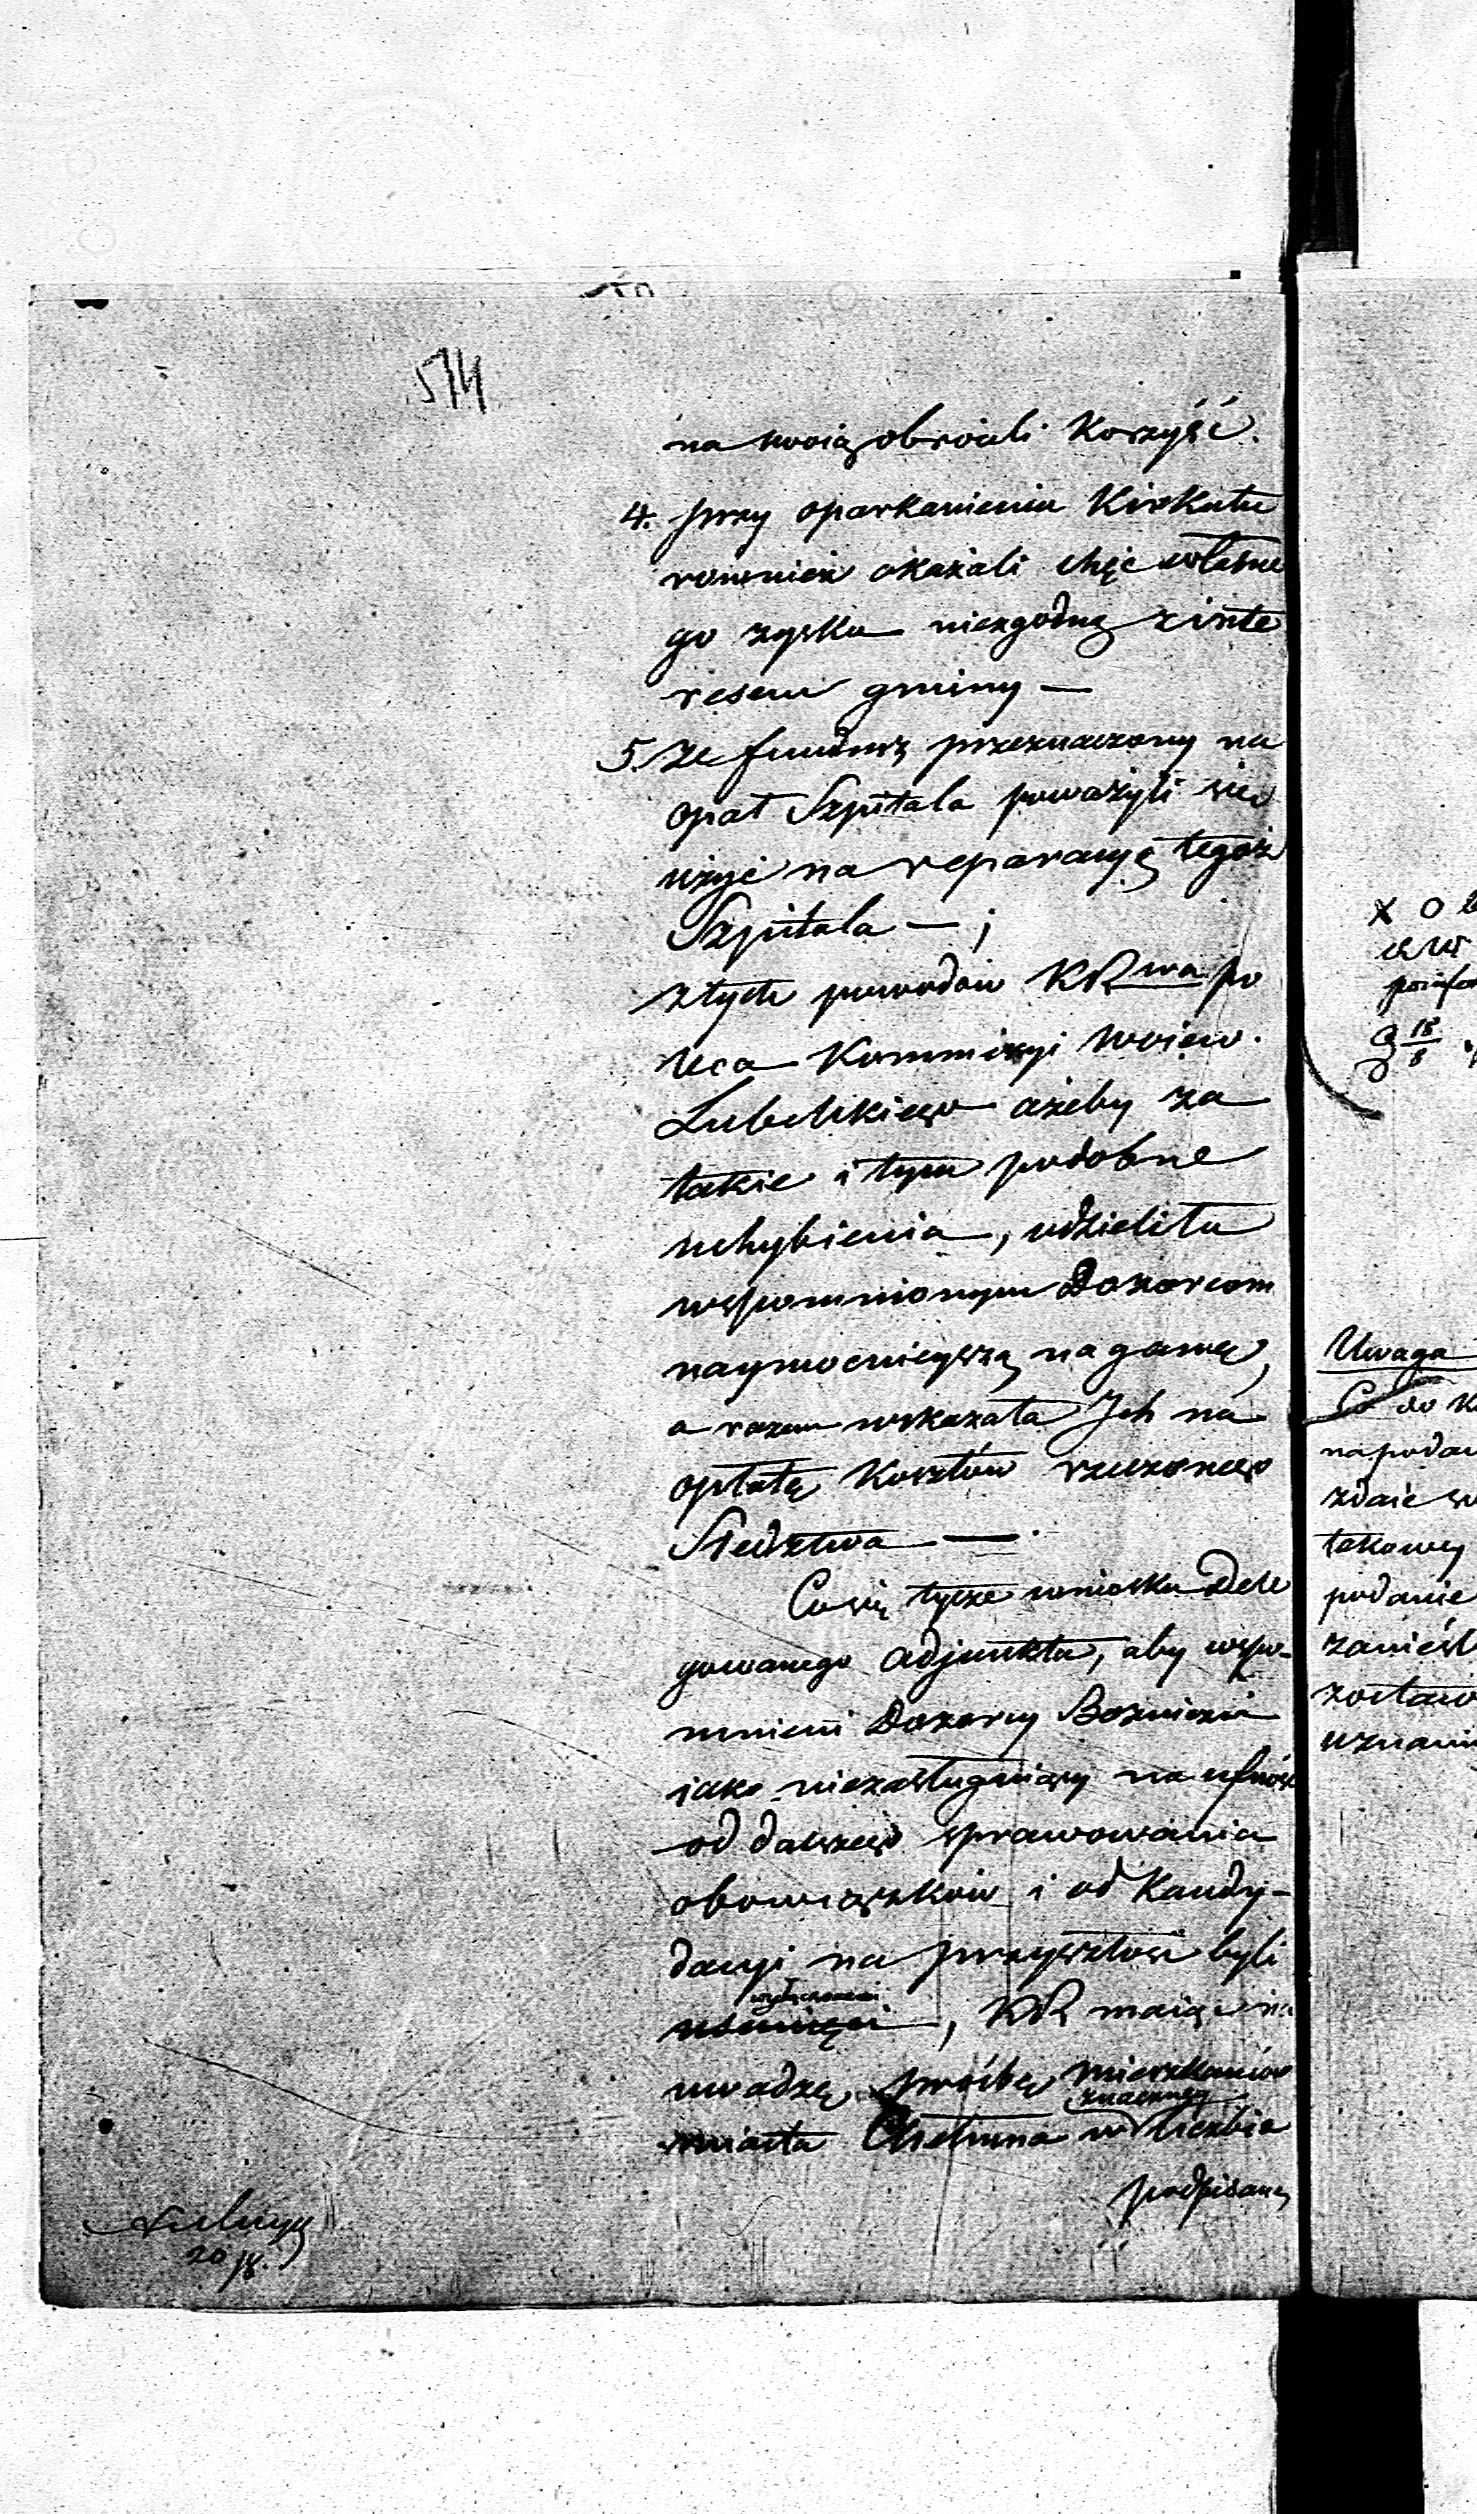 574
na swoią obrócili korzyść.
4. przy oparkanieniu Kirkutu
rownież okazali chęć własne
go zysku niezgodną z inte
resem gminy —
5. Ze fundusz przeznaczony na
opał Szpitala poważyli się
użyć na reparacyą tegoż
Szpitala — ;
z tych powodów KRwa po
leca Kommissyi Woiew.
Lubelskiego ażeby za
takie i tym podobne
uchybienia, udzieliła
wspomnionym Dozorcom
naymocnieyszą naganę,
a razem wskazała Ich na
opłatę kosztów rzeczonego
Sledztwa —
Co się tycze wniosku Dele
gowanego adjunkta, aby wspo-
mnieni Dozorcy Bozniczni
iako niezasługuiący na ufność
od dalszego sprawowania
obowiązków i od Kandy-
dacyi na przyszłość byli
wyłączeni
usunięci, KR maiąc na
uwadze, prośbę mieszkańców
znaczney
miasta Chełma w liczbie
podpisaną
20
x O
Uwaga
Co do
na podan
zdaie
takowy
podanie
zanieśl
zostaw
uznani